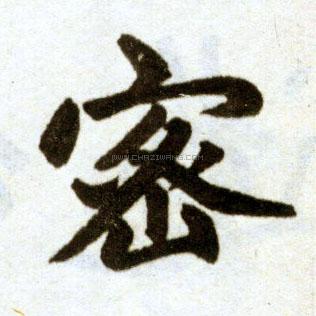 密
WWW.CHAZIWANG.COM